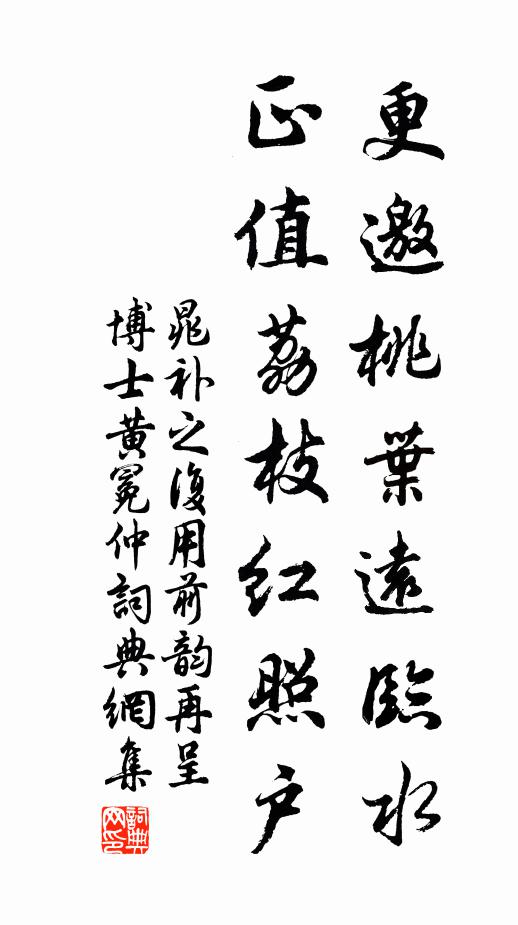 更邀桃葉遠臨水
正值荔枝紅照户
晁补之復用前韵再呈
博士黄冕仲詞典網集
詞典网印